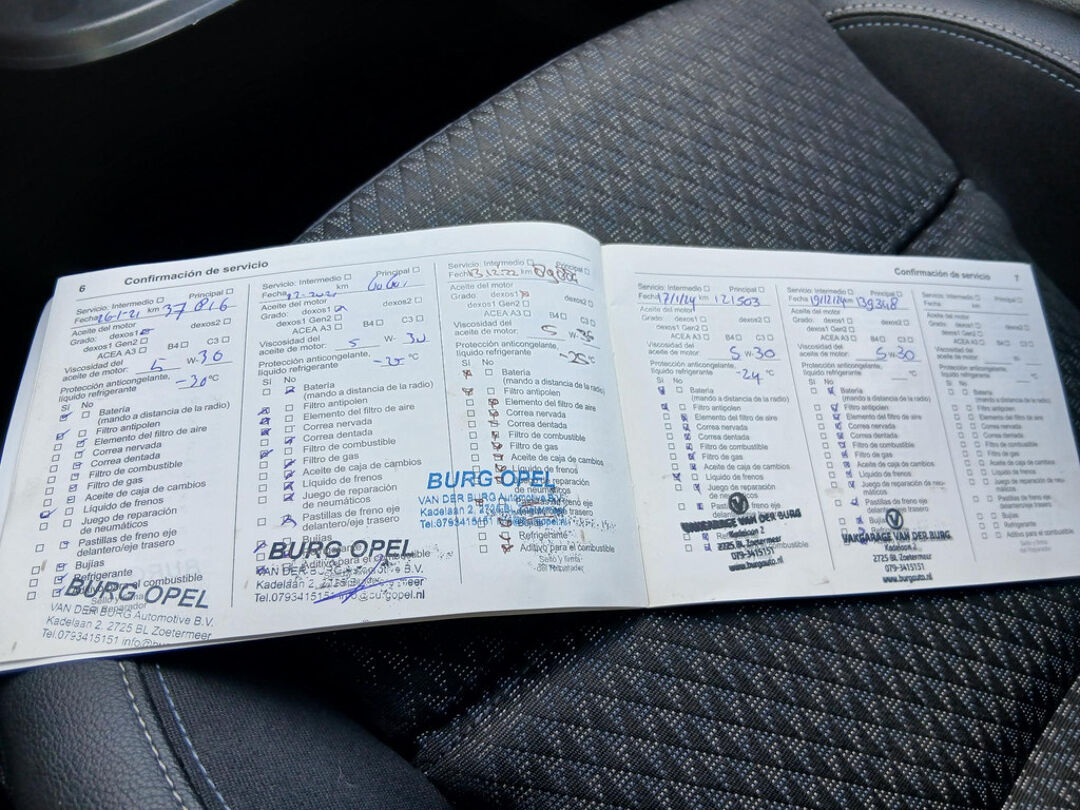 6 Confirmación de servicio
Servicio: Intermedio Principal
Fecha 26-1-21 km 37 816
Aceite del motor
Grado: dexos1 dexos2
dexos1 Gen2
ACEA A3 B4 C3
Viscosidad del
aceite de motor: 5 W- 30
Protección anticongelante,
líquido refrigerante -20 °C
Sí No
Batería
(mando a distancia de la radio)
Filtro antipolen
Elemento del filtro de aire
Correa nervada
Correa dentada
Filtro de combustible
Filtro de gas
Aceite de caja de cambios
Líquido de frenos
Juego de reparación
de neumáticos
Pastillas de freno eje
delantero/eje trasero
Bujías
Refrigerante
BURG OPEL
VAN DER BURG Automotive B.V.
Kadelaan 2, 2725 BL Zoetermeer
Tel.0793415151
Servicio: Intermedio Principal
Fecha
Aceite del motor
Grado: dexos1 dexos2
dexos1 Gen2
ACEA A3 B4 C3
Viscosidad del
aceite de motor: 5 W- 30
Protección anticongelante,
líquido refrigerante -25 °C
Sí No
Batería
(mando a distancia de la radio)
Filtro antipolen
Elemento del filtro de aire
Correa nervada
Correa dentada
Filtro de combustible
Filtro de gas
Aceite de caja de cambios
Líquido de frenos
Juego de reparación
de neumáticos
Pastillas de freno eje
delantero/eje trasero
BURG OPEL
VAN DER BURG Automotive B.V.
Kadelaan 2
Tel.0793415151 info@burgopel.nl
Servicio: Intermedio Principal
Fecha 13.12.22 km
Aceite del motor
Grado: dexos1 dexos2
dexos1 Gen2
ACEA A3 B4 C3
Viscosidad del
aceite de motor: 5 W-
Protección anticongelante,
líquido refrigerante -25 °C
Sí No
Batería
(mando a distancia de la radio)
Filtro antipolen
Elemento del filtro de aire
Correa nervada
Correa dentada
Filtro de combustible
Filtro de gas
Aceite de caja de cambios
Líquido de frenos
BURG OPEL
VAN DER BURG Automotive B.V.
Kadelaan 2
Tel.0793415151
Refrigerante
Aditivo para el combustible
Sello y firma
del Reparador
Confirmación de servicio 7
Servicio: Intermedio Principal
Fecha 17/1/24 km 121503
Aceite del motor
Grado: dexos1 dexos2
dexos1 Gen2
ACEA A3 B4 C3
Viscosidad del
aceite de motor: 5 W- 30
Protección anticongelante,
líquido refrigerante -24 °C
Sí No
Batería
(mando a distancia de la radio)
Filtro antipolen
Elemento del filtro de aire
Correa nervada
Correa dentada
Filtro de combustible
Filtro de gas
Aceite de caja de cambios
Líquido de frenos
Juego de reparación
de neumáticos
VAKGARAGE VAN DER BURG
Kadelaan 2
2725 BL Zoetermeer
079-3415151
www.burgauto.nl
Servicio: Intermedio Principal
Fecha 19/12/24 km 139348
Aceite del motor
Grado: dexos1 dexos2
dexos1 Gen2
ACEA A3 B4 C3
Viscosidad del
aceite de motor: 5 W- 30
Protección anticongelante,
líquido refrigerante °C
Sí No
Batería
(mando a distancia de la radio)
Filtro antipolen
Elemento del filtro de aire
Correa nervada
Correa dentada
Filtro de combustible
Filtro de gas
Aceite de caja de cambios
Líquido de frenos
Juego de reparación de neu-
máticos
Pastillas de freno eje
delantero/eje trasero
Bujías
VAKGARAGE VAN DER BURG
Kadelaan 2
2725 BL Zoetermeer
079-3415151
www.burgauto.nl
Servicio: Intermedio Principal
Fecha km
Aceite del motor
Grado: dexos1 dexos2
dexos1 Gen2
ACEA A3 B4 C3
Viscosidad del
aceite de motor: W-
Protección anticongelante,
líquido refrigerante °C
Sí No
Batería
(mando a distancia de la radio)
Filtro antipolen
Elemento del filtro de aire
Correa nervada
Correa dentada
Filtro de combustible
Filtro de gas
Aceite de caja de cambios
Líquido de frenos
Juego de reparación de neu-
máticos
Pastillas de freno eje
delantero/eje trasero
Bujías
Refrigerante
Aditivo para el combustible
Sello y firma
del Reparador